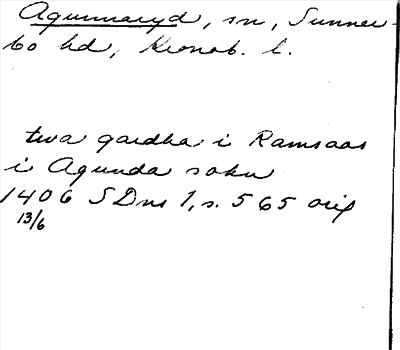 Agunnaryd, sn, Sunner-
bo hd, Kronob. l.
twa gardha i Ramsaas
i Agunda sokn
1406 SDns 1, s. 565 orig
13/6